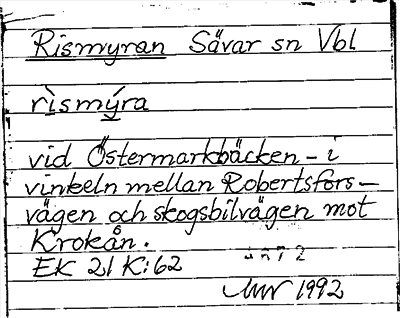 Rismyran Sävar sn Vbl
rìsmýra
vid Östermarkbäcken - i
vinkeln mellan Robertsfors-
vägen och skogsbilvägen mot
Krokån.
EK 21 K:62
1992